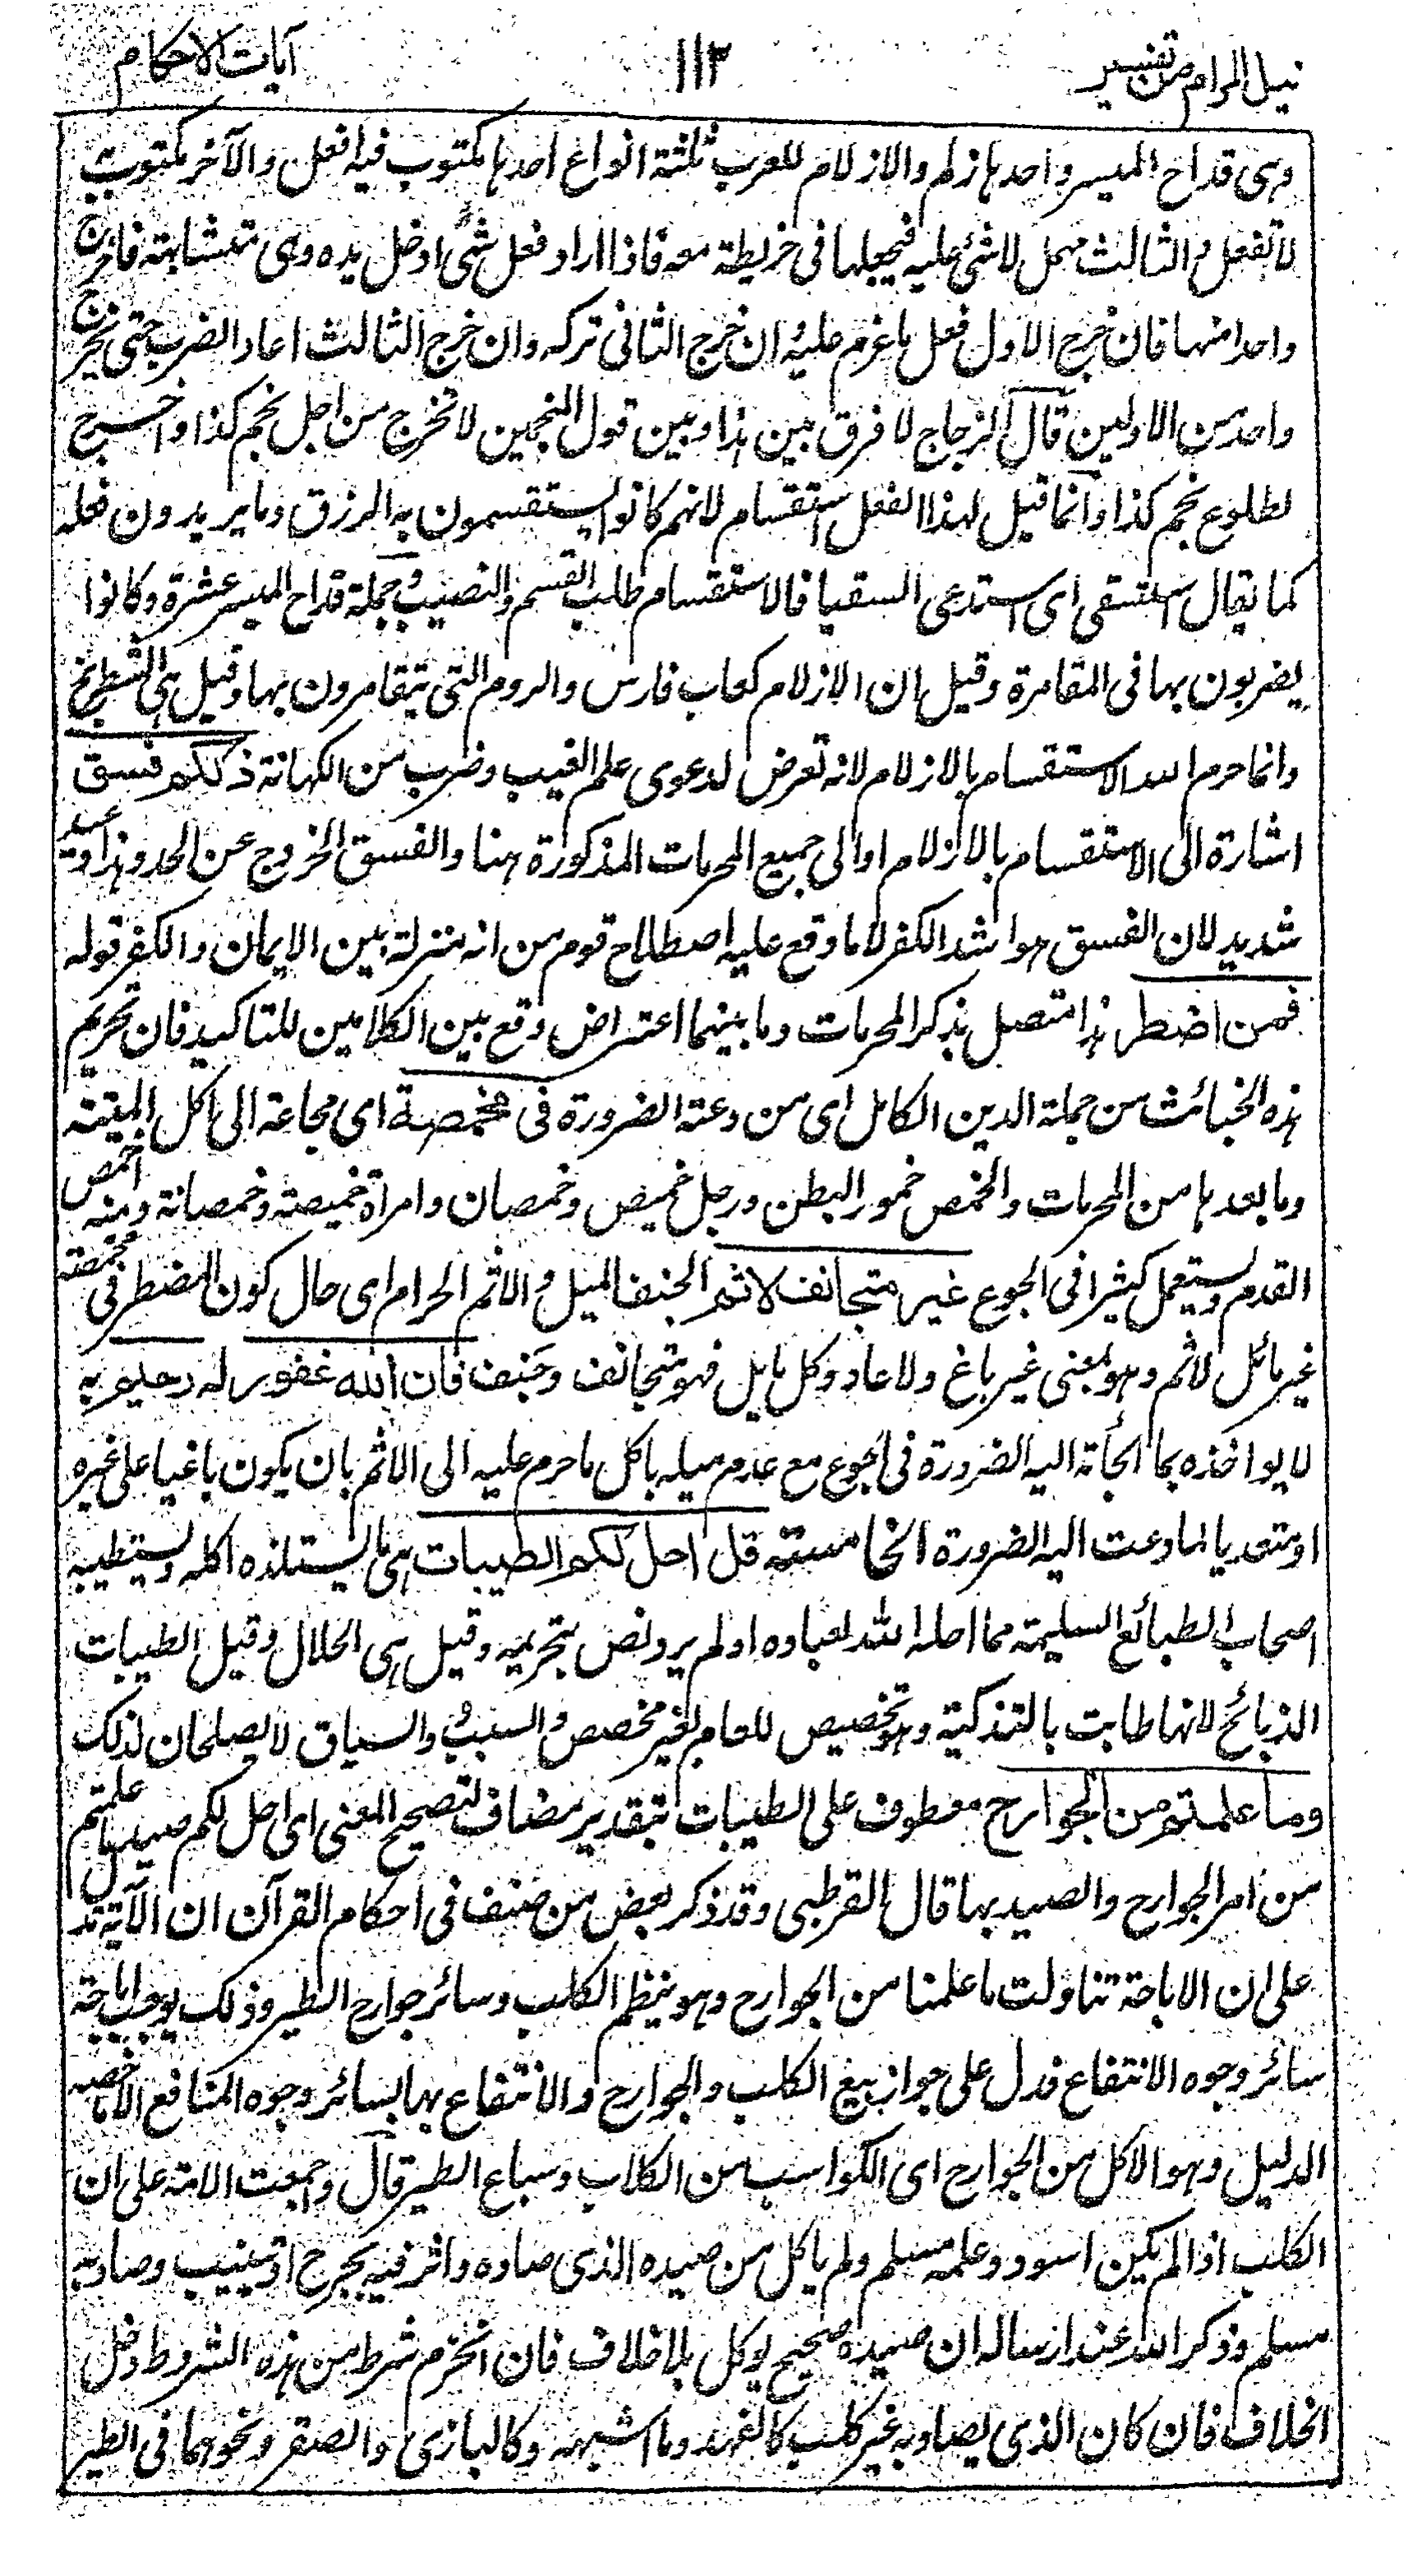 نيل المرام من تفسير ١١٣ آيات الاحكام
وهى قداح الميسر واحدها زلم والازلام للعرب ثلثة انواع احدها مكتوب فيه افعل والآخر مكتوب فيه
لا تفعل والثالث مهمل لا شئ عليه فيجعلها فى خريطة معه فاذا اراد فعل شئ ادخل يده وهى متشابهة فاخرج
واحدا منها فان خرج الاول فعل ما عزم عليه وان خرج الثانى تركه وان خرج الثالث اعاد الضرب حتى يخرج
واحد من الاولين قال الزجاج لا فرق بين هذا وبين قول المنجمين لا تخرج من اجل نجم كذا واخرج
لطلوع نجم كذا وانما قيل لهذا الفعل استقسام لانهم كانوا يستقسمون به الرزق وما يريدون فعله
كما يقال استسقى اى استدعى السقيا فالاستقسام طلب القسم والنصيب وجملة قداح الميسر عشرة وكانوا
يضربون بها فى المقامرة وقيل ان الازلام كعاب فارس والروم التى يتقامرون بها وقيل هى الشطرنج
وانما حرم الله الاستقسام بالازلام لانه تعرض لدعوى علم الغيب وضرب من الكهانة ذلكم فسق
اشارة الى الاستقسام بالازلام او الى جميع المحرمات المذكورة هنا والفسق الخروج عن الحد وهذا وعيد
شديد لان الفسق هو اشد الكفر لا ما وقع عليه اصطلاح قوم من انه منزلة بين الايمان والكفر قوله
فمن اضطر هذا متصل بذكر المحرمات وما بينهما اعتراض وقع بين الكلامين للتاكيد فان تحريم
هذه الخبائث من جملة الدين الكامل اى من دعته الضرورة فى مخمصة اى مجاعة الى اكل الميتة
وما بعدها من المحرمات والخمص ضمور البطن ورجل خميص وخمصان وامرأة خميصة وخمصانة ومنه اخمص
القدم ويستعمل كثيرا فى الجوع غير متجانف لاثم الجنف الميل والاثم الحرام اى حال كون المضطر فى مخمصة
غير مائل لاثم وهو بمعنى غير باغ ولا عاد وكل مايل فهو متجانف وجنف فان الله غفور له رحيم به
لا يواخذه بما الجأته اليه الضرورة فى الجوع مع عدم ميله باكل ما حرم عليه الى الاثم بان يكون باغيا على غيره
او متعديا لما دعت اليه الضرورة الخامسة قل احل لكم الطيبات هى ما يستلذه اكله ويستطيبه
اصحاب الطبائع السليمة مما احله الله لعباده او لم يرد نص بتحريمه وقيل هى الحلال وقيل الطيبات
الذبائح لانها طابت بالتذكية وهو تخصيص للعام بغير مخصص والسبب والسياق لا يصلحان لذلك
وما علمتم من الجوارح معطوف على الطيبات بتقدير مضاف لتصحيح المعنى اى احل لكم صيد ما علمتم
من امر الجوارح والصيد بها قال القرطبى وقد ذكر بعض من صنف فى احكام القرآن ان الآية تدل
على ان الاباحة تناولت ما علمنا من الجوارح وهو ينظم الكلب وسائر جوارح الطير وذلك يوجب اباحة
سائر وجوه الانتفاع فدل على جواز بيع الكلب والجوارح والانتفاع بها بسائر وجوه المنافع الا ما خصه
الدليل وهو الاكل من الجوارح اى الكواسب من الكلاب وسباع الطير قال واجمعت الامة على ان
الكلب اذا لم يكن اسود وعلمه مسلم ولم ياكل من صيده الذى صاده واثر فيه بجرح او تنييب وصاد به
مسلم وذكر الله عند ارساله ان صيده صحيح يوكل بلا خلاف فان انخرم شرط من هذه الشروط دخل
الخلاف فان كان الذى يصاد به غير كلب كالفهد وما اشبهه وكالبازى والصقر ونحوهما فى الطير